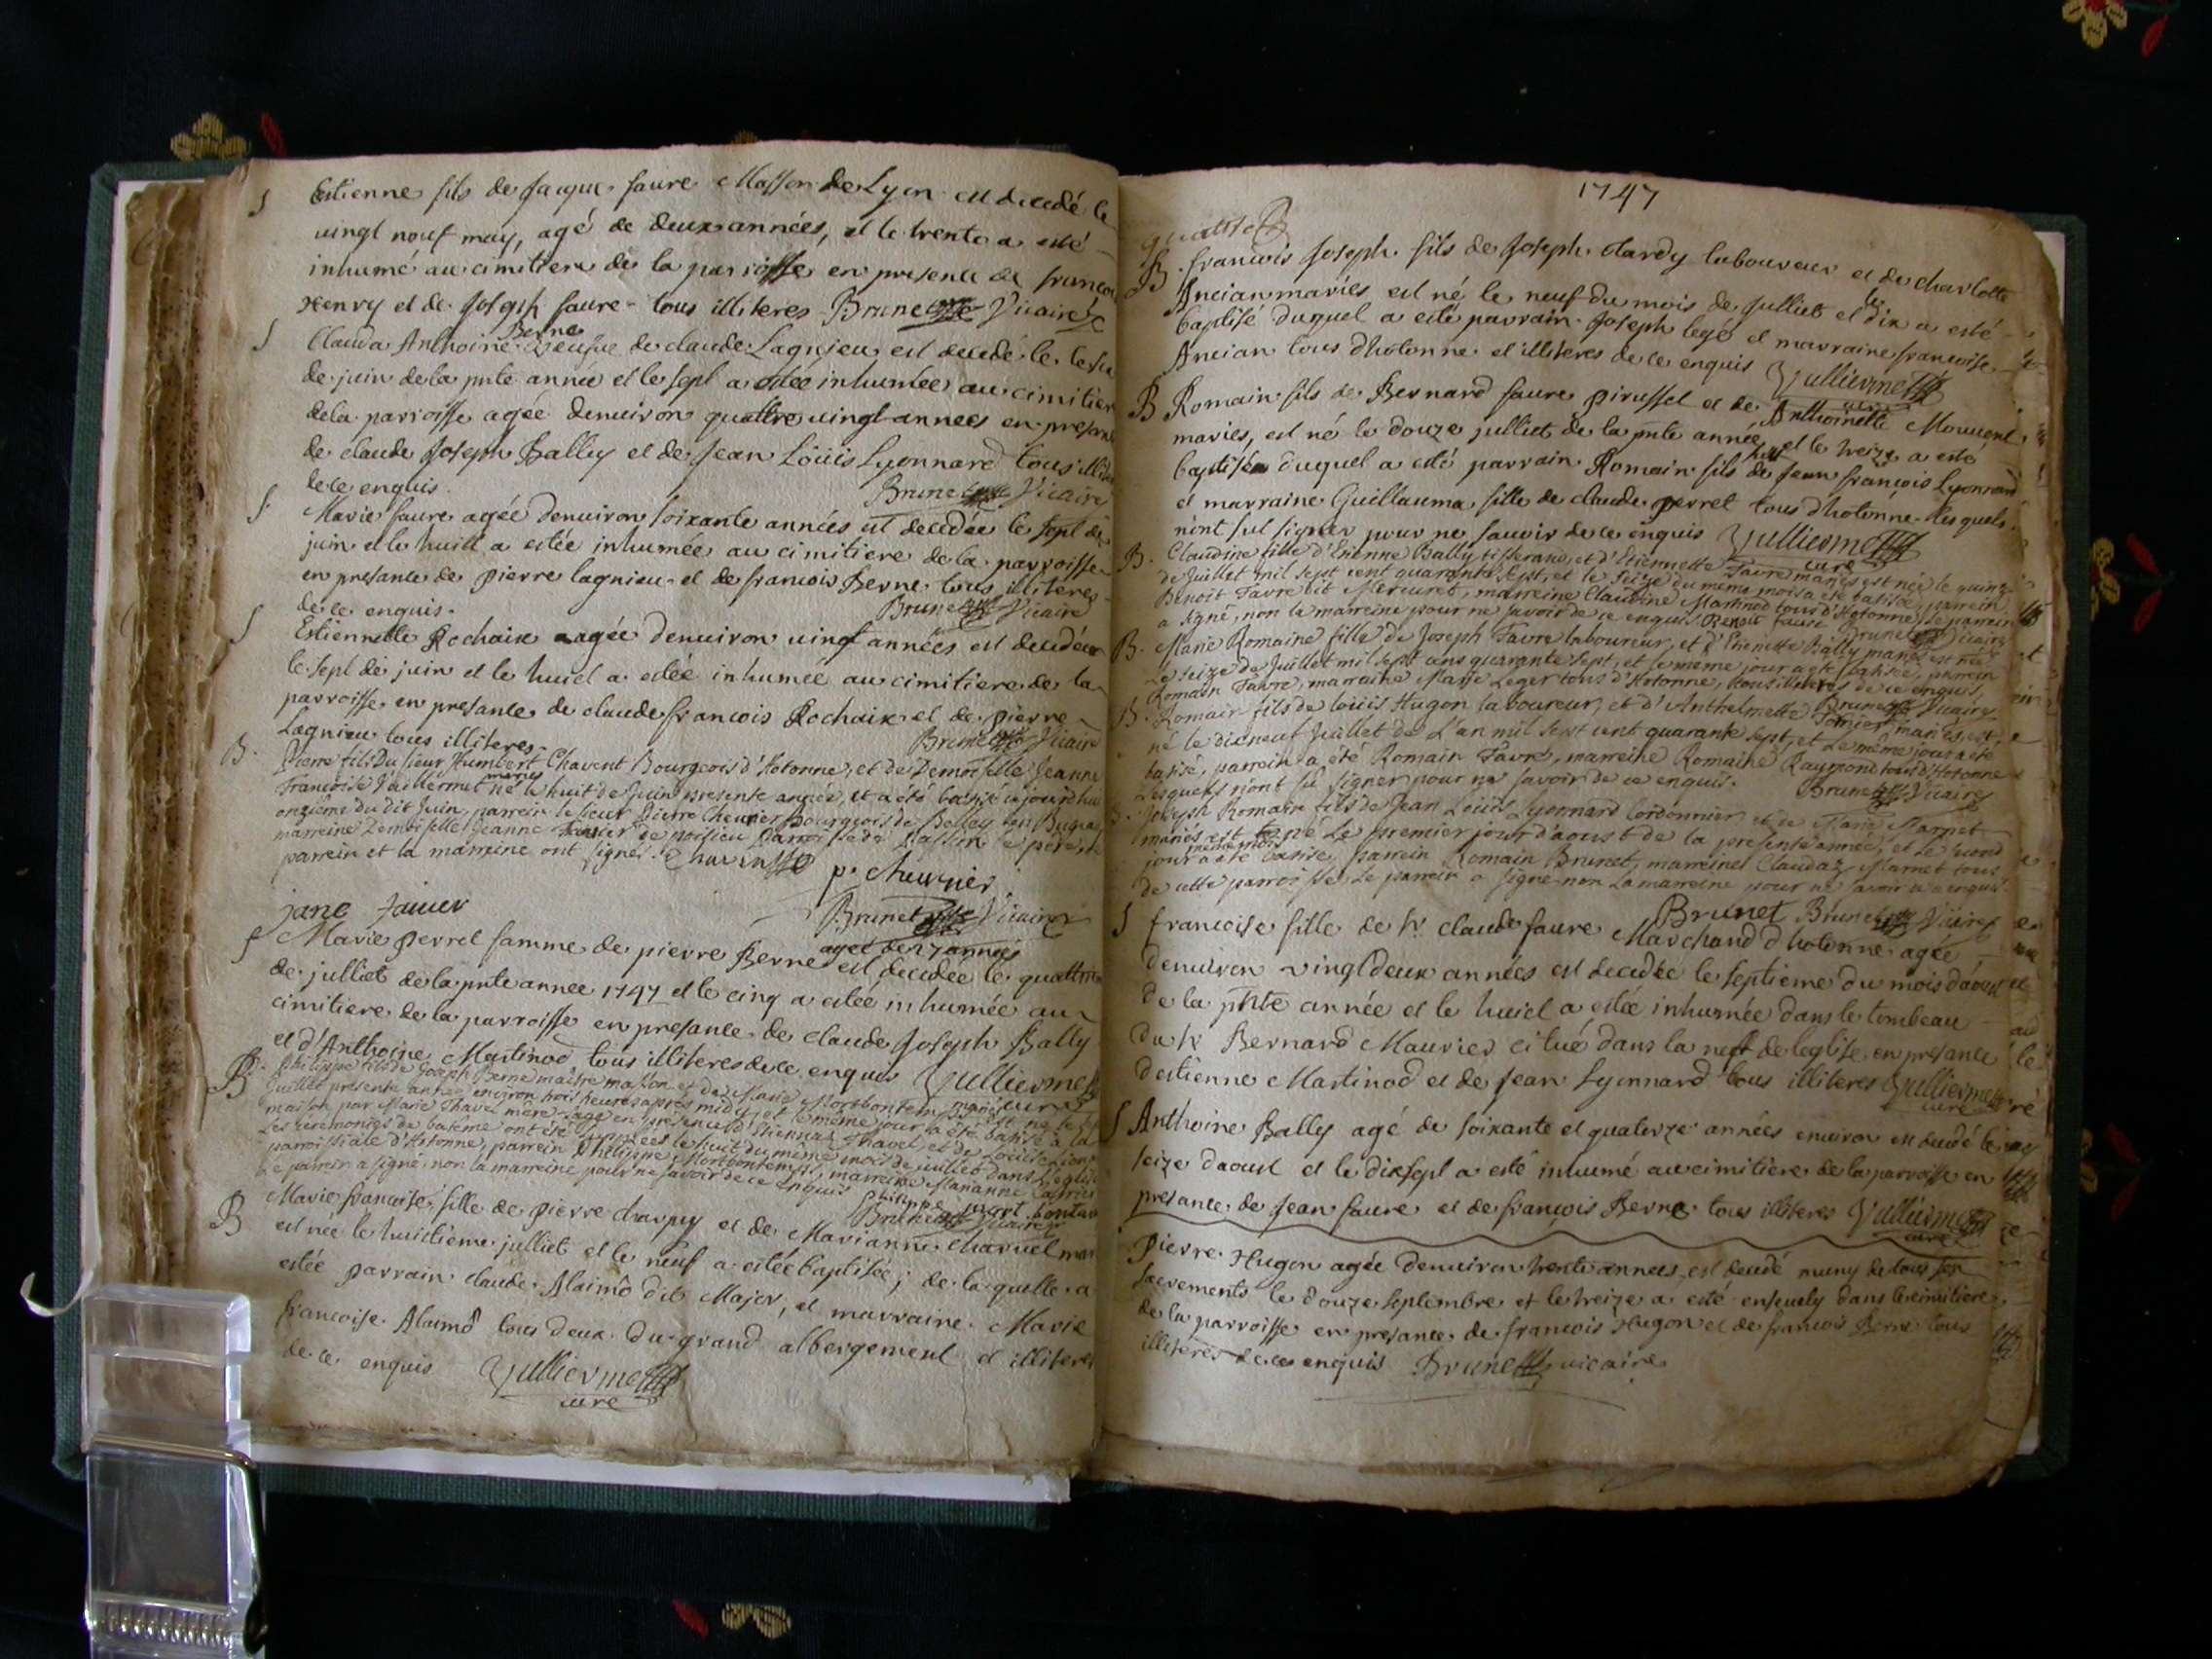 S Estienne fils de Jacque faure Masson de Lyon est decedé le
vingt neuf may, agé de deux années, et le trente a esté
inhumé au cimitiere de la parroisse en presence de françois
henry et de Joseph faure tous illiteres Brunet Vicaire
S Clauda Anthoine Berne veufve de claude Lagnieu est decedé le
de juin de la pnte année et le sept a estée inhumée au cimitiere
de la parroisse agée denviron quattre vingt annees en presance
de claude Joseph Bally et de Jean Loüis Lyonnard tous
de ce enquis Brunet Vicaire
S Marie faure agée denviron soixante années est decedée le sept de
juin et le huict a estée inhumée au cimitiere de la parroisse
en presance de pierre lagnieu et de francois Berne tous illiteres
de ce enquis. Brunet Vicaire
S Estiennette Rochaix agée denviron vingt années est decedée
le sept de juin et le huict a estée inhumée au cimitiere de la
parroisse en presance de claude francois Rochaix et de pierre
Lagnieu tous illiteres. Brunet Vicaire
B. Pierre fils du sieur Humbert Chavent Bourgeois d'Hotonne, et de Demoiselle Jeanne
Francoise Vuillermet mariés né le huit de Juin presente année, et a été batisé aujourd'hui
onzième du dit Juin, parrein le sieur Pierre Cheurier Bourgeois de Belley en Bugey
marreine Demoiselle Jeanne le pere, le
parrein et la marreine ont signés. p. cheurier
jane Brunet Vicaire
S Marie perret famme de pierre Berne agée de 27 années est decedée le quattrie
de julliet de la pnte annee 1747 et le cinq a estée inhumée au
cimitiere de la parroisse en presance de claude Joseph Bally
et d'Anthoine Martinod tous illiteres de ce enquis Vulliermet
B. Philippe fils de Joseph Berne maitre masson et de Marie Montbontem mariés est né le
Juillet presente année environ trois heures après midy, et le même jour a été batisé à la
maison par Marie Thavel mère sage en presence d'Etienne Thavel, et de
Les ceremonies du batême ont été supplées le huit du même mois de juillet dans l'eglise
parroissiale d'Hotonne, parrein Philippe Montbontemps, marreine Marianne
Le parrein a signé, non la marreine pour ne savoir de ce enquis
Brunet Vicaire
B Marie francoise fille de pierre charpy et de Marianne charvel
est née le huictieme julliet et le neuf a estée baptisée; de laquelle a
estée parrain claude Alaimô dit Major, et marraine Marie
francoise Alaimô tous deux du grand albergement et illiteres
de ce enquis Vulliermet
curé
1747
B francois Joseph fils de Joseph dardy laboureur et de charlotte
Ancian mariés est né le neuf du mois de Julliet et le dix a esté
baptisé duquel a esté parrain Joseph legé et marraine francoise
Ancian tous dhotonne et illiteres de ce enquis Vulliermet
curé
B Romain fils de Bernard faure pirussel et de Anthoinette
mariés, est né le douze julliet de la pnte année, et le treize a esté
baptisé duquel a esté parrain Romain fils de Jean françois Lyonnard
et marraine Guillauma fille de claude perret tous dhotonne lesquels
nont sut signer pour ne savoir de ce enquis Vulliermet
curé
B. Claudine fille d'Etienne Bally tisserand, et d'Etiennette Favre mariés est née le quinze
de Juillet mil sept cent quarante sept, et le seize du même mois a été batisée, parrein
Benoit Favre dit Mercuret, marreine Claudine Martinod tous d'Hotonne, le parrein
a signé, non la marreine pour ne savoir de ce enquis. Benoit faure Brunet Vicaire
B. Marie Romaine fille de Joseph Favre laboureur, et d'Etiennette Bally mariés est née
Le seize de Juillet mil sept cens quarante sept, et le meme jour a été batisée, parrein
Romain Favre, marraine Marie Leger tous d'Hotonne, tous illiteres de ce enquis
Brunet Vicaire
B. Romain fils de loüis Hugon laboureur, et d'Anthelmette mariés, est
né le dixneuf Juillet de L'an mil sept cent quarante sept, et le même jour a été
batisé, parrein a été Romain Favre, marreine Romaine Raymond tous d'Hotonne
Lesquels n'ont sû signer pour ne savoir de ce enquis. Brunet Vicaire
Joseph Romain fils de Jean Loüis Lyonnard cordonnier et de Marie Marnet
mariés est né le premier jour d'aoust de la presente année, et le second
jour a été batisé, parrein Romain Brunet, marreine Claudaz Marnet tous
de cette parroisse, le parrein a signé non la marreine pour ne savoir de ce enquis.
Brunet Brunet Vicaire
S francoise fille de Sr claude faure Marchand dhotonne agée
denviron vingt deux années est decedée le septieme du mois daoust
de la pnte année et le huict a estée inhumée dans le tombeau
du Sr Bernard Maurier citué dans la neft de leglise en presance
destienne Martinod et de Jean Lyonnard tous illiteres Vulliermet
curé
S Anthoine Bally agé de soixante et quatorze années environ est decedé le
seize daoust et le dixsept a esté inhumé au cimitiere de la parroisse en
presance de Jean faure et de françois Berne tous illiteres Vulliermet
curé
Pierre Hugon agée denviron trente annees est decedé muny de tous ses
sacrements le douze septembre et le treize a esté ensevely dans le cimitiere
de la parroisse en presance de francois Hugon et de francois Berne tous
illiteres de ce enquis Brunet vicaire